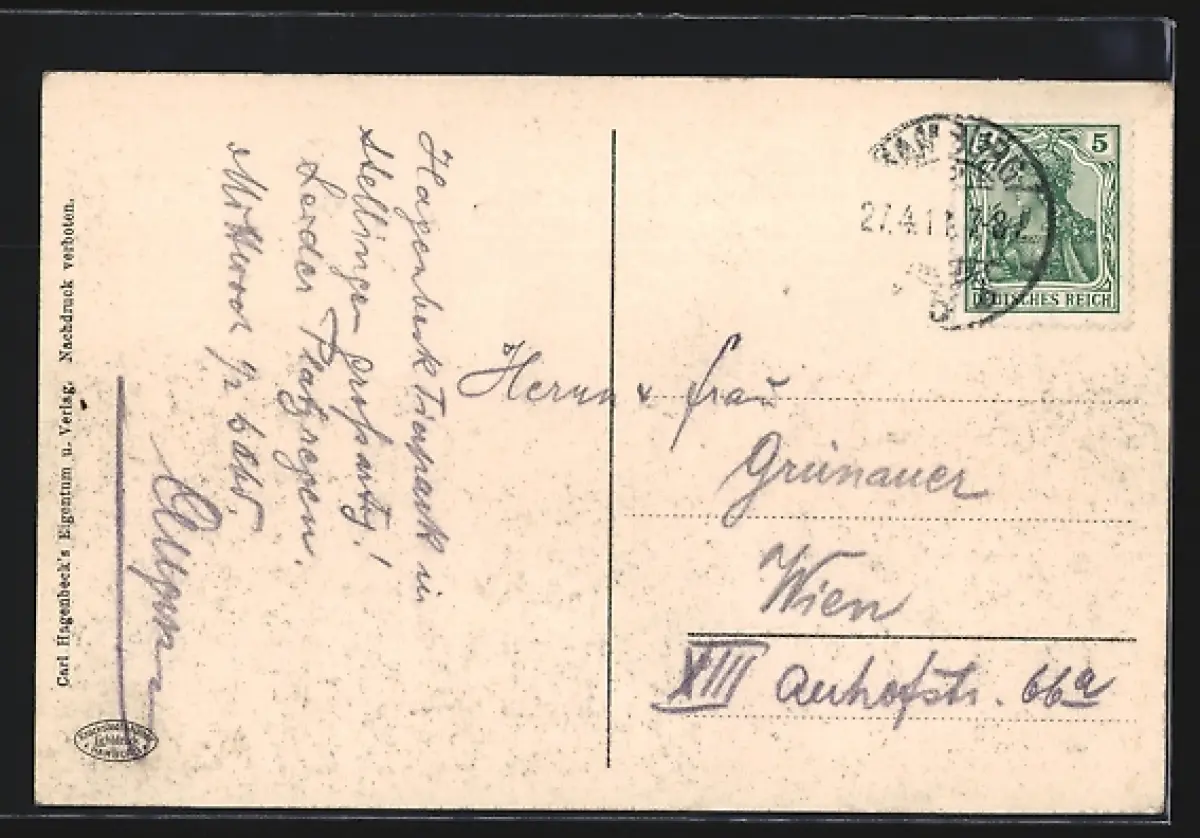 Carl Hagenbeck's Eigentum u. Verlag. Nachdruck verboten.
Hagenbeck Tierpark in
Stellingen großartig!
Leider Platzregen.
Mittwoch 1/2 6 Uhr
HAMBURG
27.4.11 7-8
5
DEUTSCHES REICH
Herrn & Frau
Grünauer
Wien
XIII Auhofstr. 66a